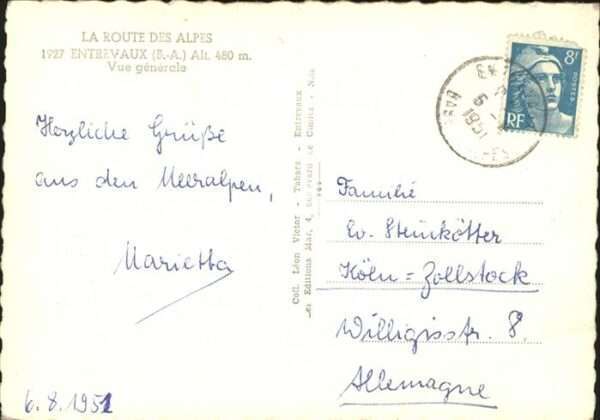 LA ROUTE DES ALPES
1927 ENTREVAUX (B.-A.) Alt. 480 m.
Vue générale
Herzliche Grüße
aus den Meeralpen,
Marietta
6.8.1951
Coll. Léon Victor - Tabacs - Entrevaux
Editions Mar, 4, boulevard de Cimiez - Nice
8F
POSTES
RF
Familie
Ev. Steinkötter
Köln=Zollstock
Willigisstr. 8.
Allemagne